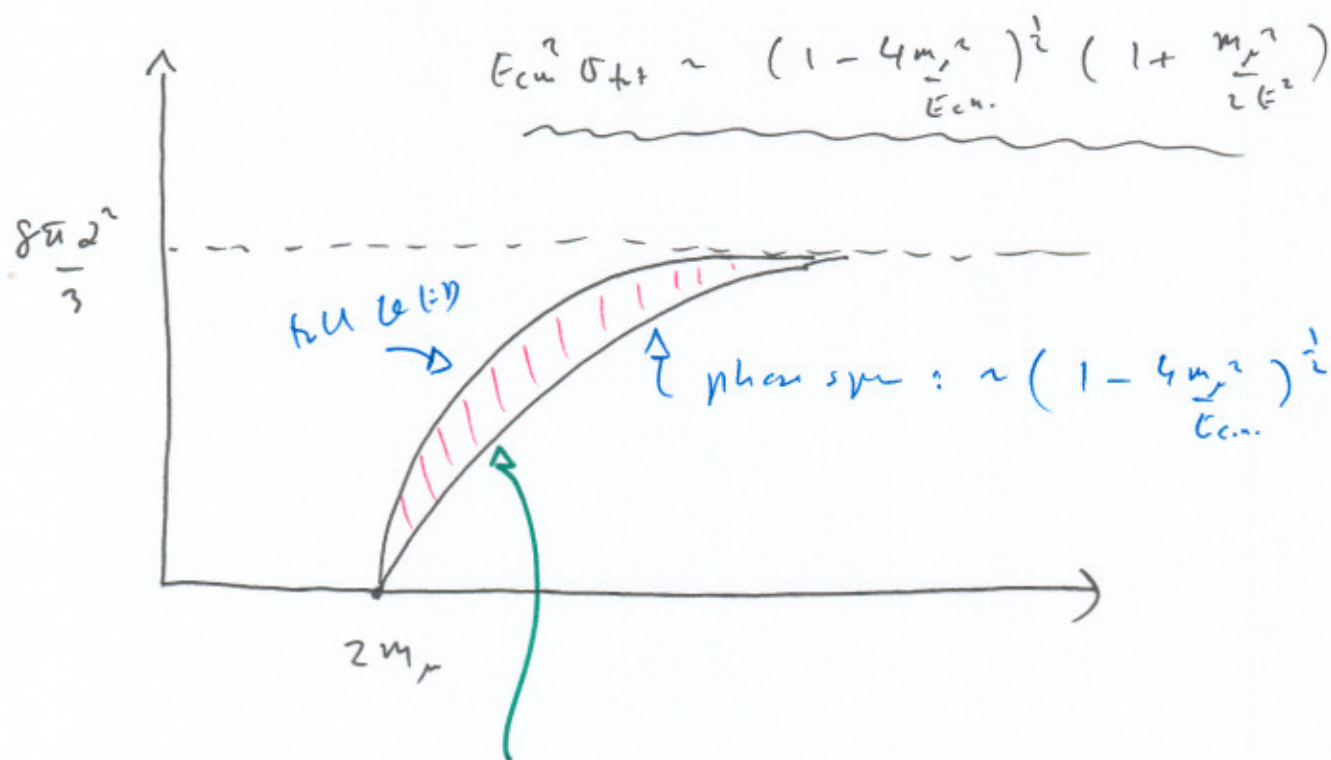 E_cm² σ_tot ~ (1 - 4m_μ²/E_c.m.)^½ (1 + m_μ²/2E²)
8πα²/3
full QED
phase space : ~ (1 - 4m_μ²/E_c.m.)^½
2m_μ